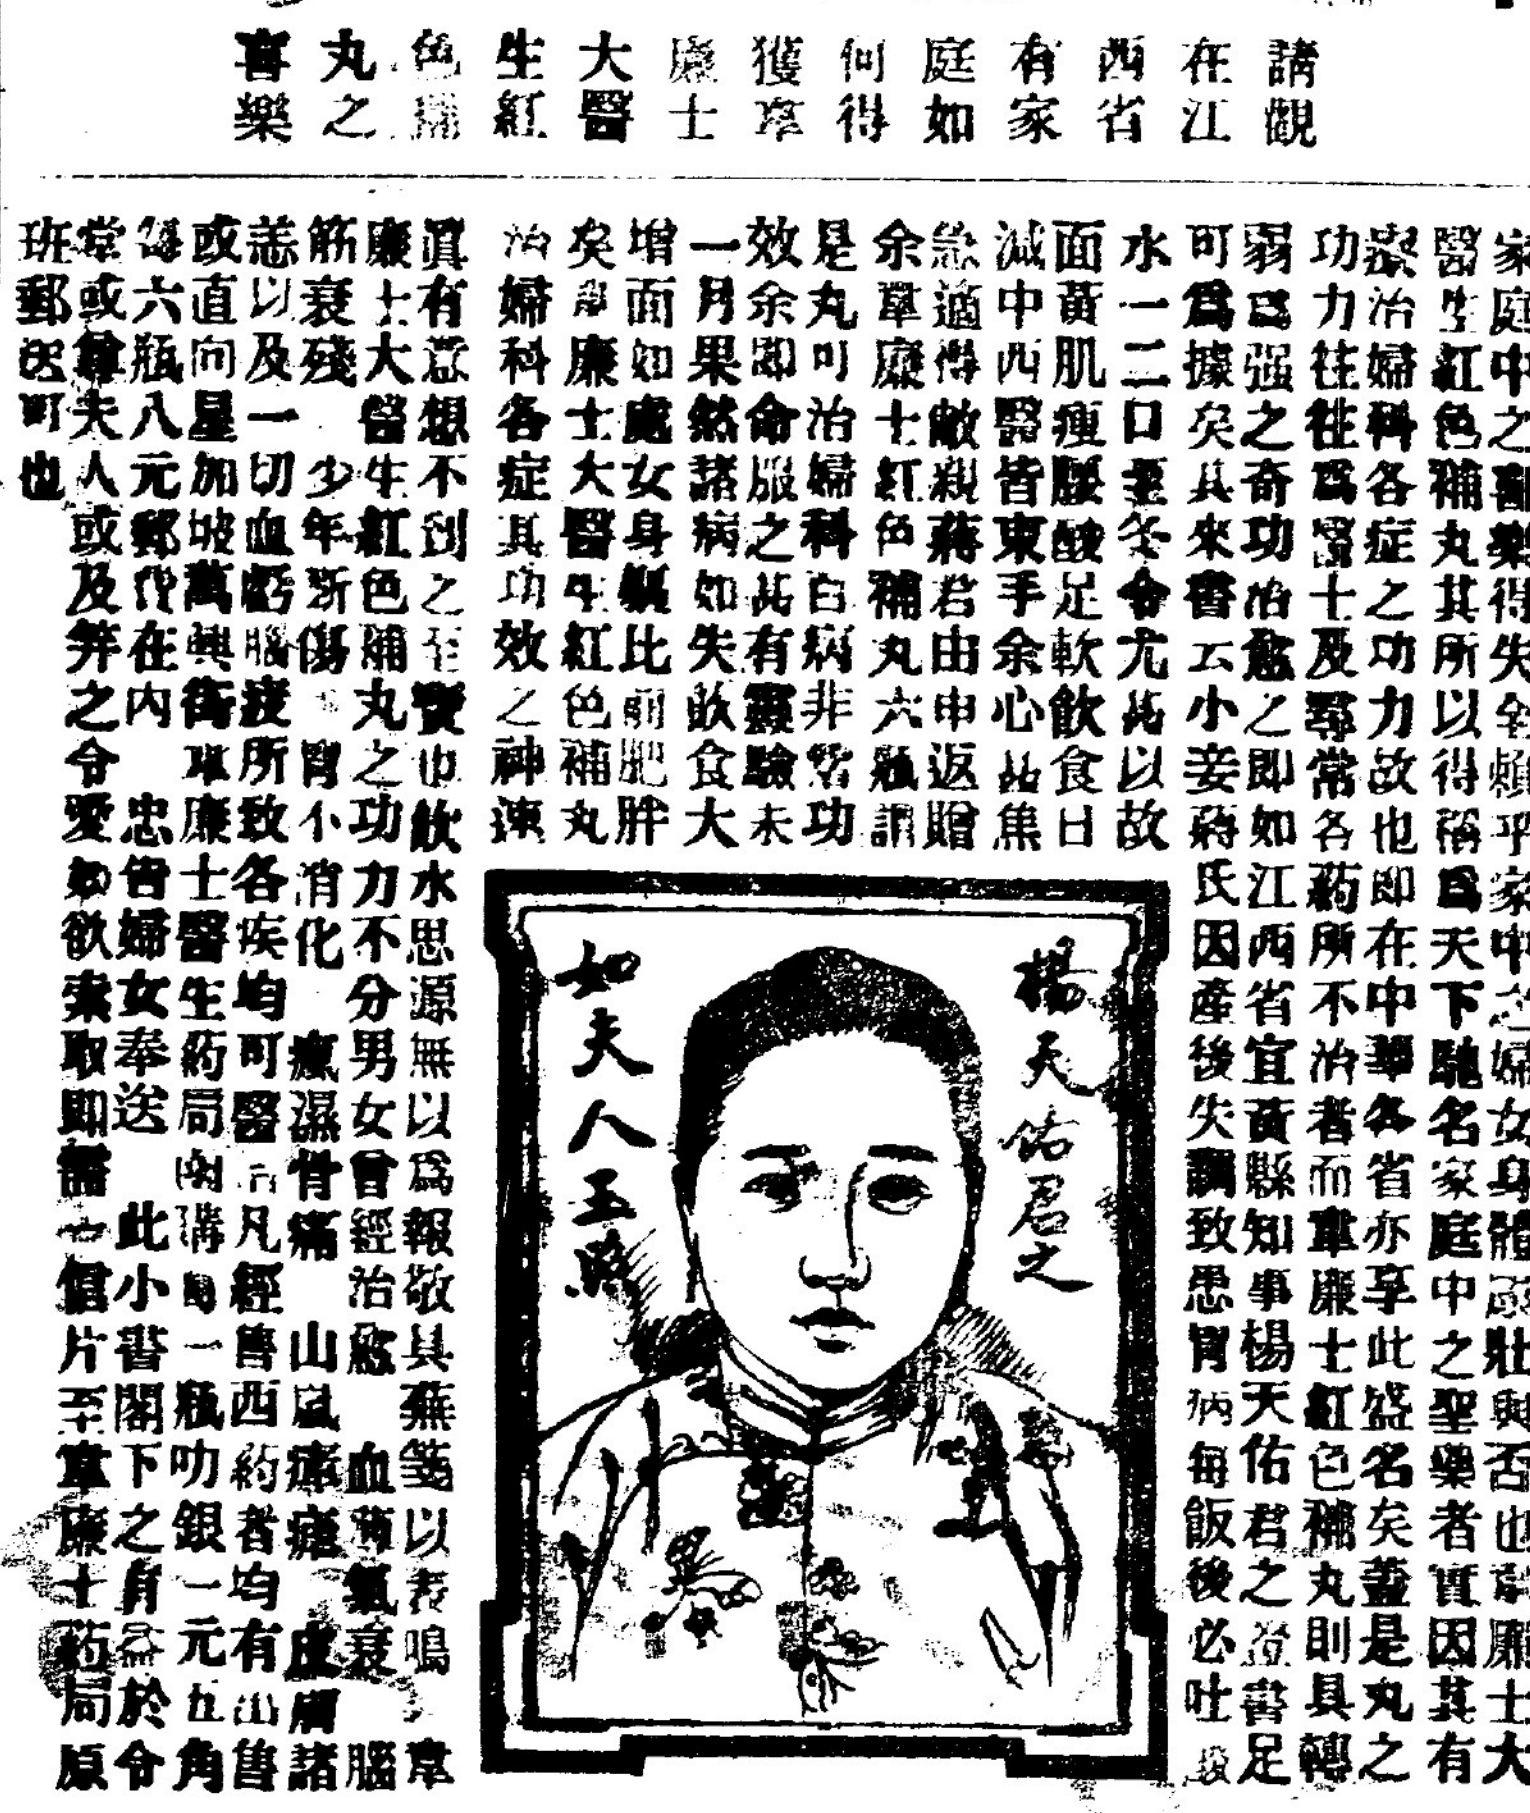 請觀
在江
西省
有家
庭如
何得
獲韋
廉士
大醫
生紅
色補
丸之
喜樂
家庭中之喜樂得失全賴乎家中之婦女身體康壯與否也韋廉士大
醫生紅色補丸其所以得稱爲天下馳名家庭中之聖藥者實因其有
療治婦科各症之功力故也即在中華各省亦享此盛名矣蓋是丸之
功力往往爲醫士及尋常各藥所不治者而韋廉士紅色補丸則具轉
弱爲强之奇功治愈之即如江西省宜黃縣知事楊天佑君之證書足
可爲據矣其來書云小妾蔣氏因產後失調致患胃病每飯後必吐酸
水一二口至冬令尤甚以故
面黃肌瘦腰酸足軟飲食日
減中西醫皆束手余心甚焦
急適得敝親蔣君由申返贈
余韋廉士紅色補丸六瓶謂
是丸可治婦科白病非常功
效余即命服之甚有靈驗未
一月果然諸病如失飲食大
增面如處女身軀比前肥胖
矣韋廉士大醫生紅色補丸
治婦科各症其功效之神速
楊天佑君之
如夫人玉照
眞有意想不到之至寶也飲水思源無以爲報敬具蕪箋以表鳴 韋
廉士大醫生紅色補丸之功力不分男女曾經治愈 血薄氣衰 腦
筋衰殘 少年斲傷 胃不消化 瘋濕骨痛 山嵐瘴瘧 皮膚諸
恙以及一切血虧腦疲所致各疾均可醫 凡經售西藥者均有出售
或直向星加坡萬興街韋廉士醫生藥局函購每一瓶叻銀一元五角
每六瓶八元郵費在內 忠告婦女奉送 此小書閣下之有益於令
堂或尊夫人或及笄之令愛如欲索取即請 一信片至韋廉士藥局原
班郵送可也